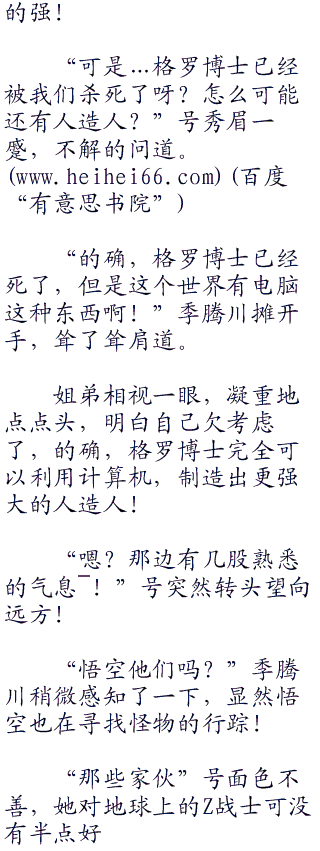 的强！
“可是…格罗博士已经
被我们杀死了呀？怎么可能
还有人造人？”号秀眉一
蹙，不解的问道。
(www.heihei66.com)(百度
“有意思书院”)
“的确，格罗博士已经
死了，但是这个世界有电脑
这种东西啊！”季腾川摊开
手，耸了耸肩道。
姐弟相视一眼，凝重地
点点头，明白自己欠考虑
了，的确，格罗博士完全可
以利用计算机，制造出更强
大的人造人！
“嗯？那边有几股熟悉
的气息‾！”号突然转头望向
远方！
“悟空他们吗？”季腾
川稍微感知了一下，显然悟
空也在寻找怪物的行踪！
“那些家伙”号面色不
善，她对地球上的Z战士可没
有半点好